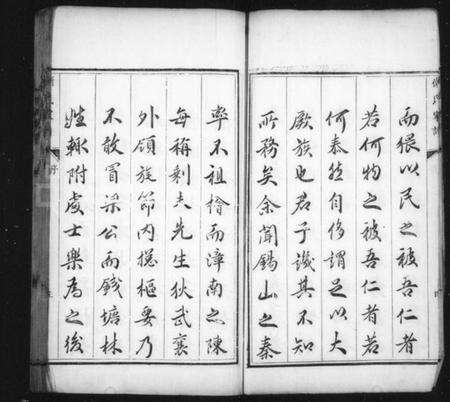 而猥以民之被吾仁者
若何物之被吾仁者若
何泰然自侈謂足以大
厥族也君子譏其不知
所務矣余聞錫山之秦
率不祖檜而漳南之陳
每稱剩夫先生狄武襄
外領旄節內摠樞要乃
不敢冒梁公而錢塘林
姓輙附處士樂為之後